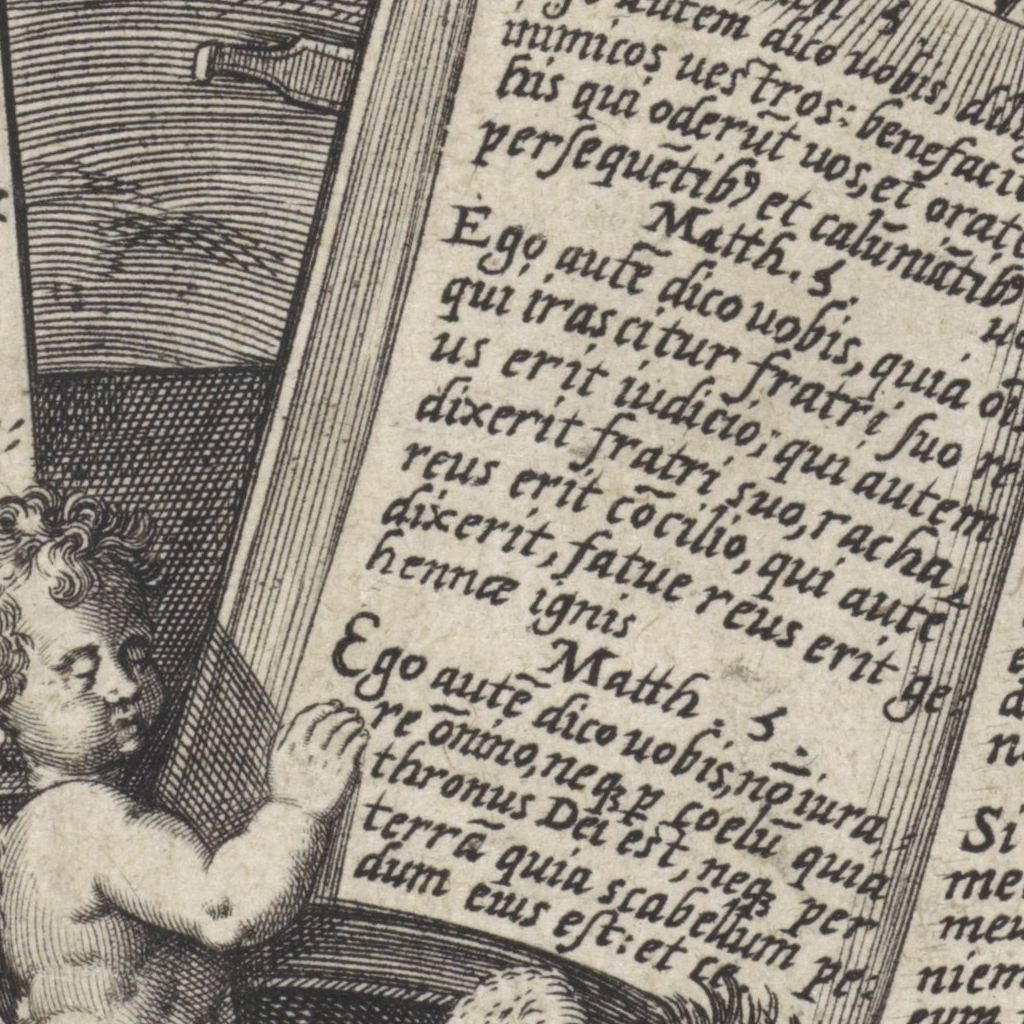 Matth. 5.
Ego autem dico uobis, dilig
inimicos uestros: benefacit
his qui oderūt uos, et orate
persequētibꝫ et calūniātibꝫ
uo
Matth. 5.
Ego autē dico uobis, quia oīs
qui irascitur fratri suo re
us erit iudicio; qui autem
dixerit fratri suo, racha,
reus erit cōcilio, qui autē
dixerit, fatue reus erit ge
hennæ ignis
Matth. 5.
Ego autē dico uobis, nō iura,
re ōnino, neqꝫ ꝑ coelū quia
thronus Dei est, neqꝫ per
terrā quia scabellum pe:
dum eius est: et ce.
Si
me
meu
niem
eum